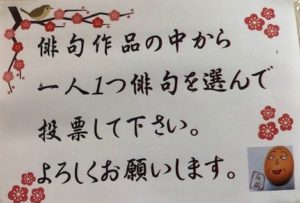 俳句作品の中から
一人1つ俳句を選んで
投票して下さい。
よろしくお願いします。